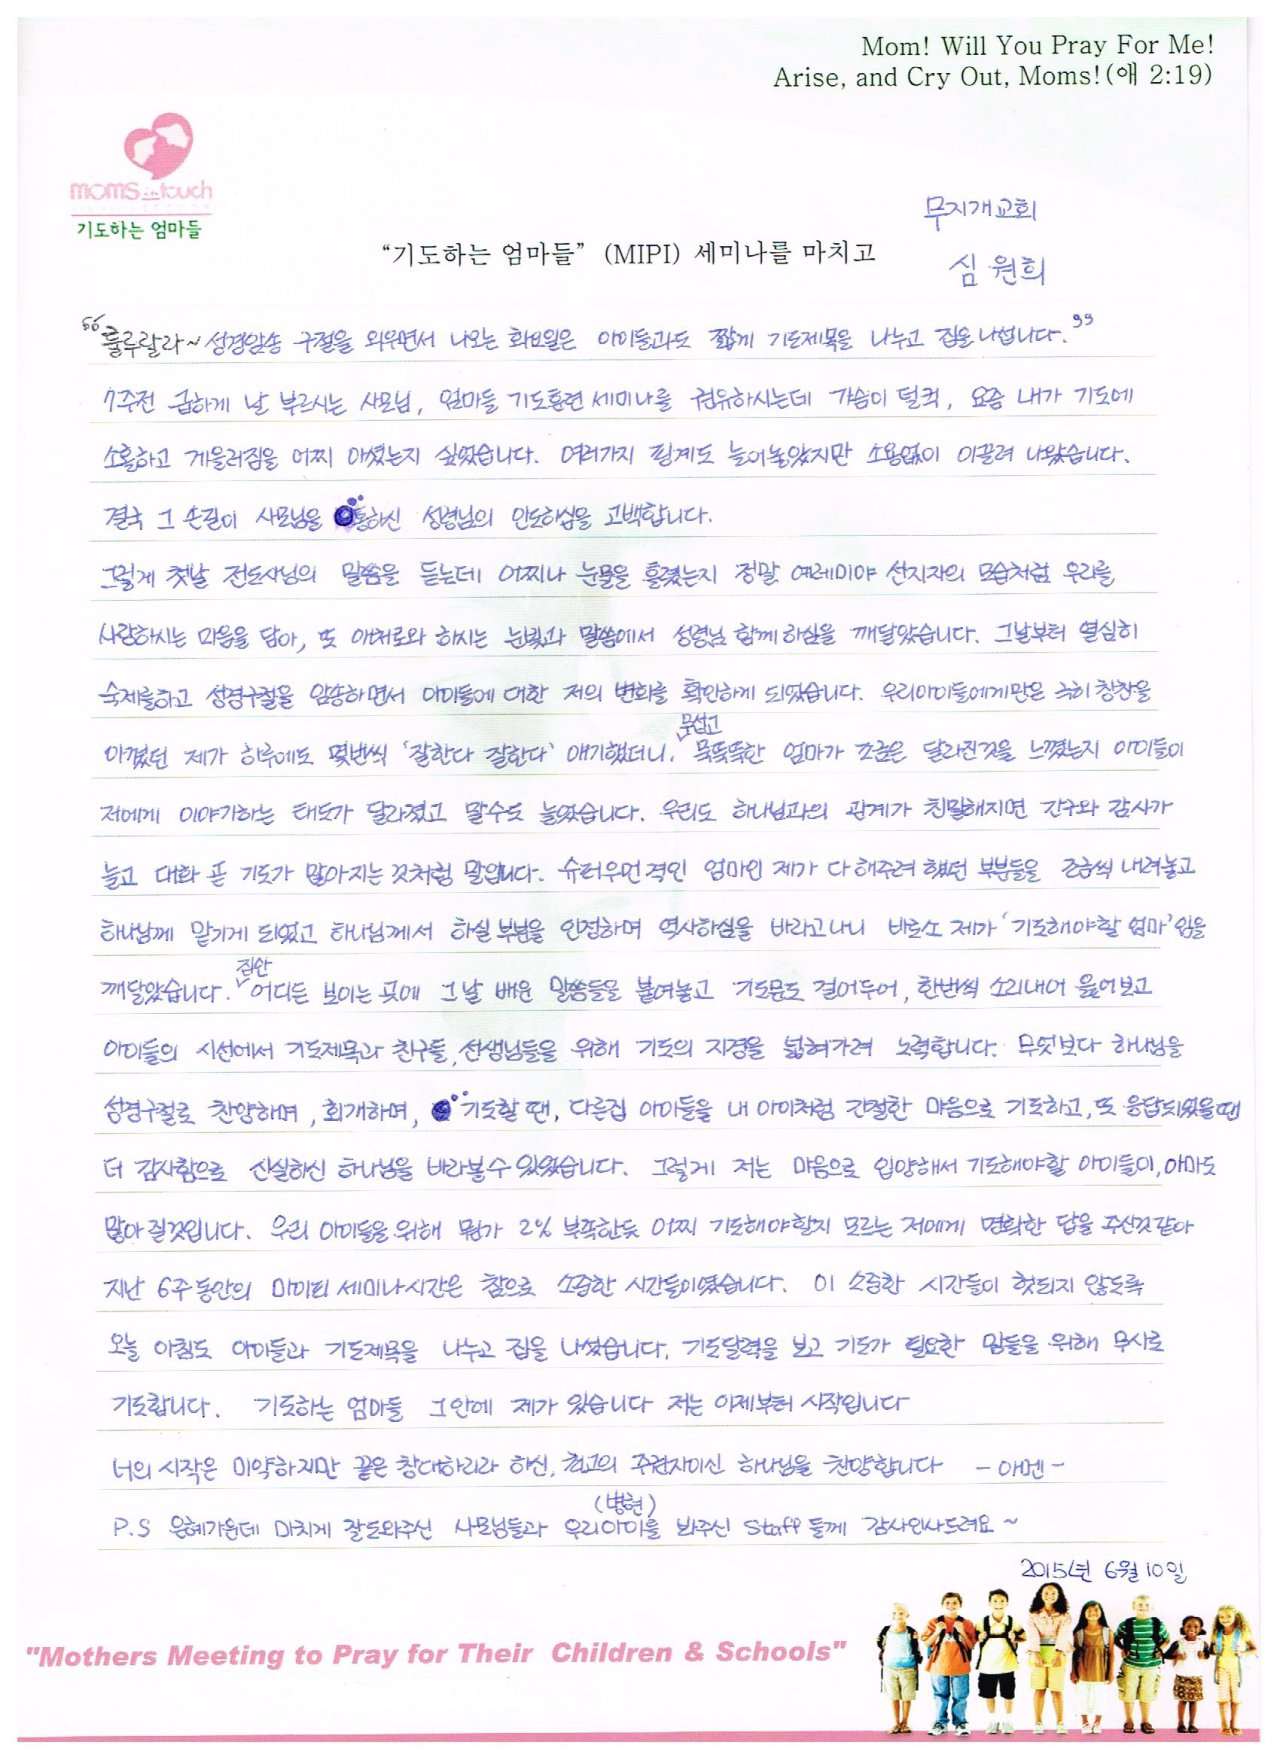 Mom! Will You Pray For Me!
Arise, and Cry Out, Moms!(애 2:19)
moms in touch
기도하는 엄마들
무지개교회
“기도하는 엄마들” (MIPI) 세미나를 마치고
심원희
“룰루랄라~ 성경암송 구절을 외우면서 나오는 화요일은 아이들과도 짧게 기도제목을 나누고 집을 나섭니다.”
7주전 급하게 날 부르시는 사모님, 엄마들 기도훈련 세미나를 권유하시는데 가슴이 덜컥, 요즘 내가 기도에
소홀하고 게을러짐을 어찌 아셨는지 싶었습니다. 여러가지 핑계도 늘어놓았지만 소용없이 이끌려 나왔습니다.
결국 그 손길이 사모님을 통하신 성령님의 인도하심을 고백합니다.
그렇게 첫날 전도사님의 말씀을 듣는데 어찌나 눈물을 흘렸는지 정말 예레미야 선지자의 모습처럼 우리를
사랑하시는 마음을 담아, 또 애처로와 하시는 눈빛과 말씀에서 성령님 함께하심을 깨달았습니다. 그날부터 열심히
숙제를하고 성경구절을 암송하면서 아이들에 대한 저의 변화를 확인하게 되었습니다. 우리아이들에게만은 극히 칭찬을
아꼈던 제가 하루에도 몇번씩 '잘한다 잘한다' 얘기했더니, 무섭고 뚝뚝한 엄마가 조금은 달라진것을 느꼈는지 아이들이
저에게 이야기하는 태도가 달라졌고 말수도 늘었습니다. 우리도 하나님과의 관계가 친밀해지면 간구와 감사가
늘고 대화 곧 기도가 많아지는 것처럼 말입니다. 슈퍼우먼격인 엄마인 제가 다해주려 했던 부분들을 조금씩 내려놓고
하나님께 맡기게 되었고 하나님께서 하실 부분을 인정하며 역사하심을 바라고나니 비로소 제가 '기도해야할 엄마'임을
깨달았습니다. 집안 어디든 보이는 곳에 그날 배운 말씀들을 붙여놓고 기도문도 걸어두어, 한번씩 소리내어 읊어보고
아이들의 시선에서 기도제목과 친구들, 선생님들을 위해 기도의 지경을 넓혀가려 노력합니다. 무엇보다 하나님을
성경구절로 찬양하며, 회개하며, 기도할 땐, 다른집 아이들을 내 아이처럼 간절한 마음으로 기도하고, 또 응답되었을땐
더 감사함으로 신실하신 하나님을 바라볼수 있었습니다. 그렇게 저는 마음으로 입양해서 기도해야할 아이들이, 아마도
많아질것입니다. 우리 아이들을 위해 뭔가 2% 부족한듯 어찌 기도해야할지 모르는 저에게 명확한 답을 주신것같아
지난 6주동안의 마이피 세미나시간은 참으로 소중한 시간들이였습니다. 이 소중한 시간들이 헛되지 않도록
오늘 아침도 아이들과 기도제목을 나누고 집을 나섰습니다. 기도달력을 보고 기도가 필요한 맘들을 위해 무시로
기도합니다. 기도하는 엄마들 그안에 제가 있습니다 저는 이제부터 시작입니다
너의 시작은 미약하지만 끝은 창대하리라 하신, 최고의 주권자이신 하나님을 찬양합니다 - 아멘 -
P.S 은혜가운데 마치게 잘도와주신 사모님들과 우리아이(병현)를 봐주신 staff 들께 감사인사드려요 ~
2015년 6월 10일
"Mothers Meeting to Pray for Their Children & Schools"